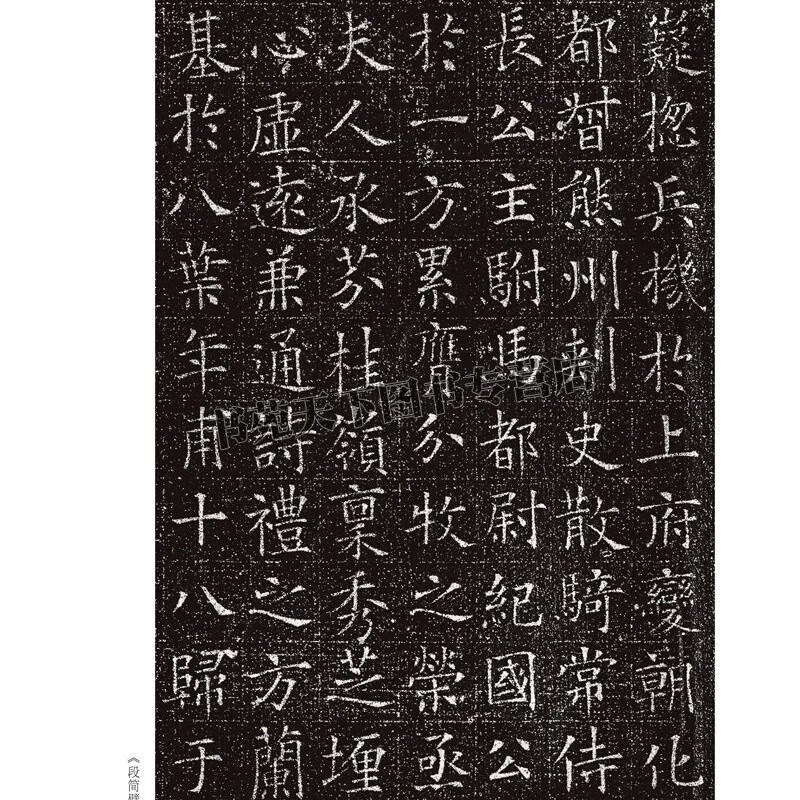 嶷揔兵機於上府變朝化
都督熊州刺史散騎常侍
長公主駙馬都尉紀國公
於一方累膺分牧之榮亟
夫人承芬桂嶺稟秀芝堙
心虛遠兼通詩禮之方蘭
基於八葉年甫十八歸于
书苑天下图书专营店
《段简璧